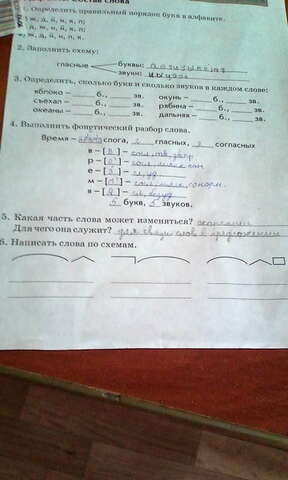 Состав слова
1. Определить правильный порядок букв в алфавите.
ж, д, й, н, к, п;
д, ж, н, й, к, п;
ж, д, й, н, п, к.
2. Заполнить схему:
гласные буквы:
звуки:
3. Определить, сколько букв и сколько звуков в каждом слове:
яблоко – б., зв. окунь – б., зв.
съехал – б., зв. рябина – б., зв.
океаны – б., зв. дальняя – б., зв.
4. Выполнить фонетический разбор слова.
Время – слога, 2 гласных, 3 согласных
в – [в] – согл., тв.,
р – [р'] –
е – [э'] –
м – [м'] –
я – [а] –
5 букв, 5 звуков.
5. Какая часть слова может изменяться? окончание
Для чего она служит? для связи слов в предложении
6. Написать слова по схемам.